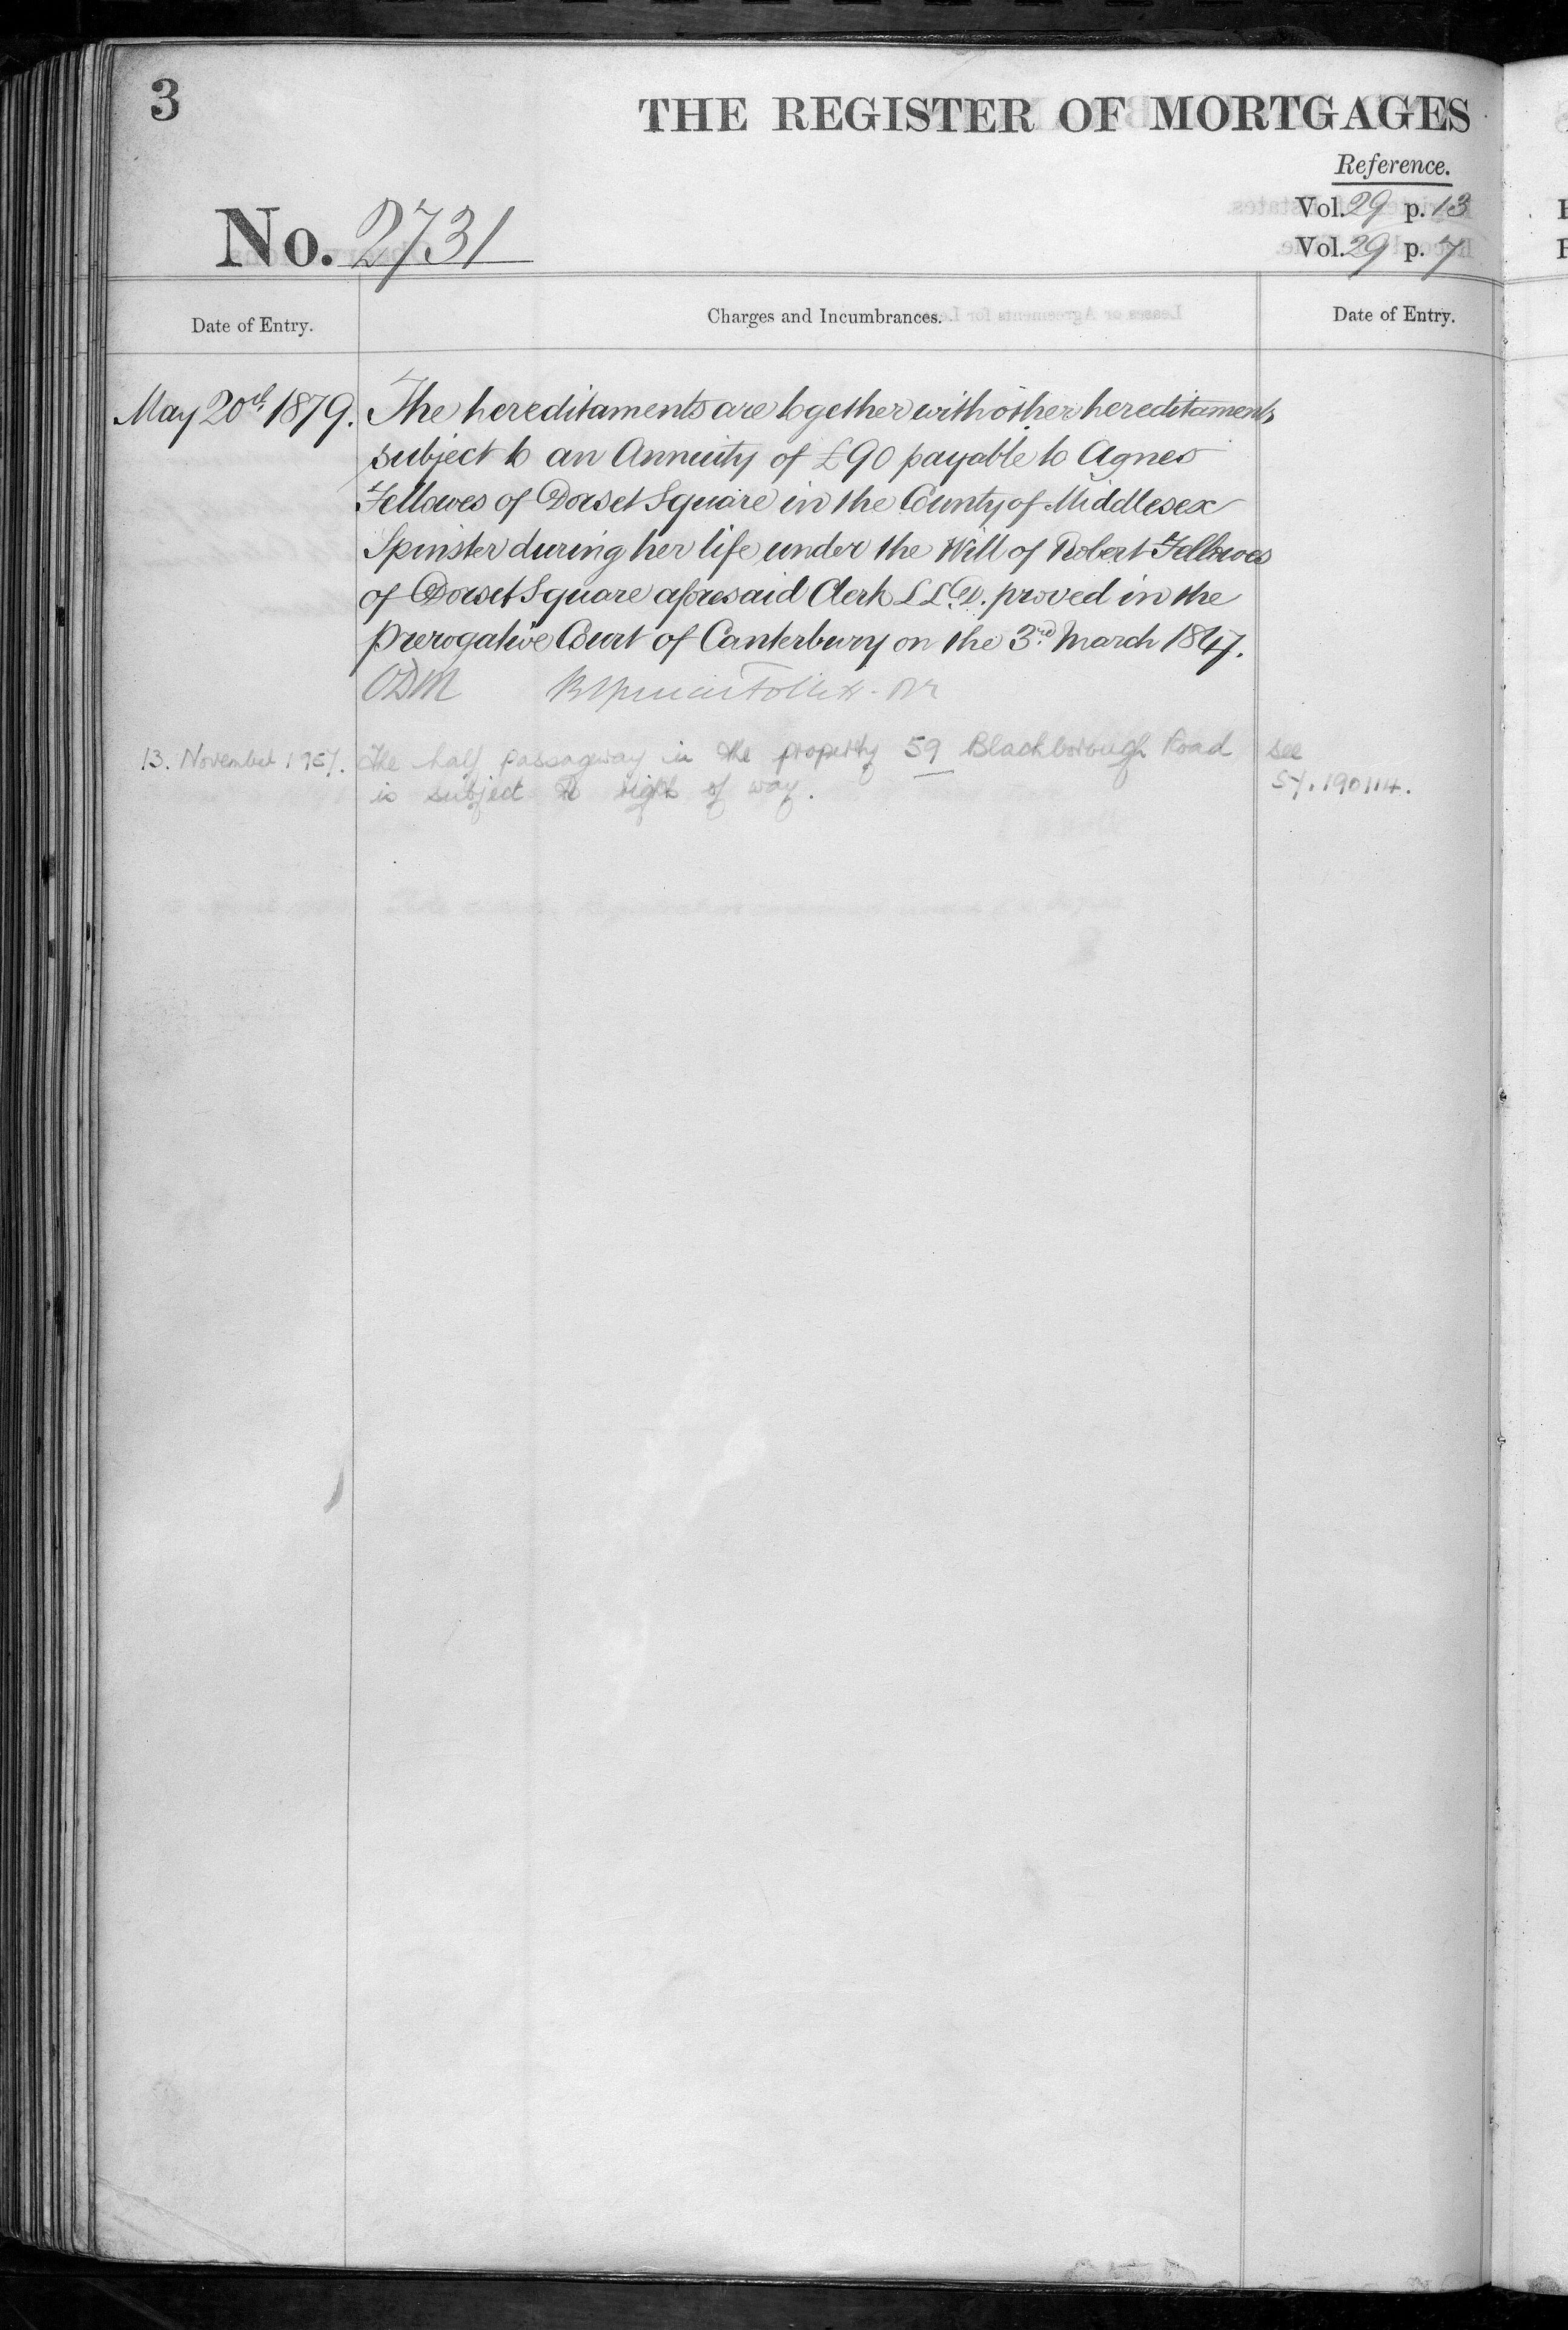 3
THE REGISTER OF MORTGAGES
Reference.
Vol. 29 p. 13
No. 2731
Vol. 29 p. 7
Date of Entry.
Charges and Incumbrances.
Date of Entry.
May 20th 1879. The hereditaments are together with other hereditaments
subject to an Annuity of £90 payable to Agnes
Fellowes of Dorset Square in the County of Middlesex
Spinster during her life under the Will of Robert Fellowes
of Dorset Square aforesaid Clerk LL.D. proved in the
Prerogative Court of Canterbury on the 3rd March 1847.
ODM
13. November 1957. The half passageway in the property 59 Blackborough Road see
is subject to rights of way. SY.190114.